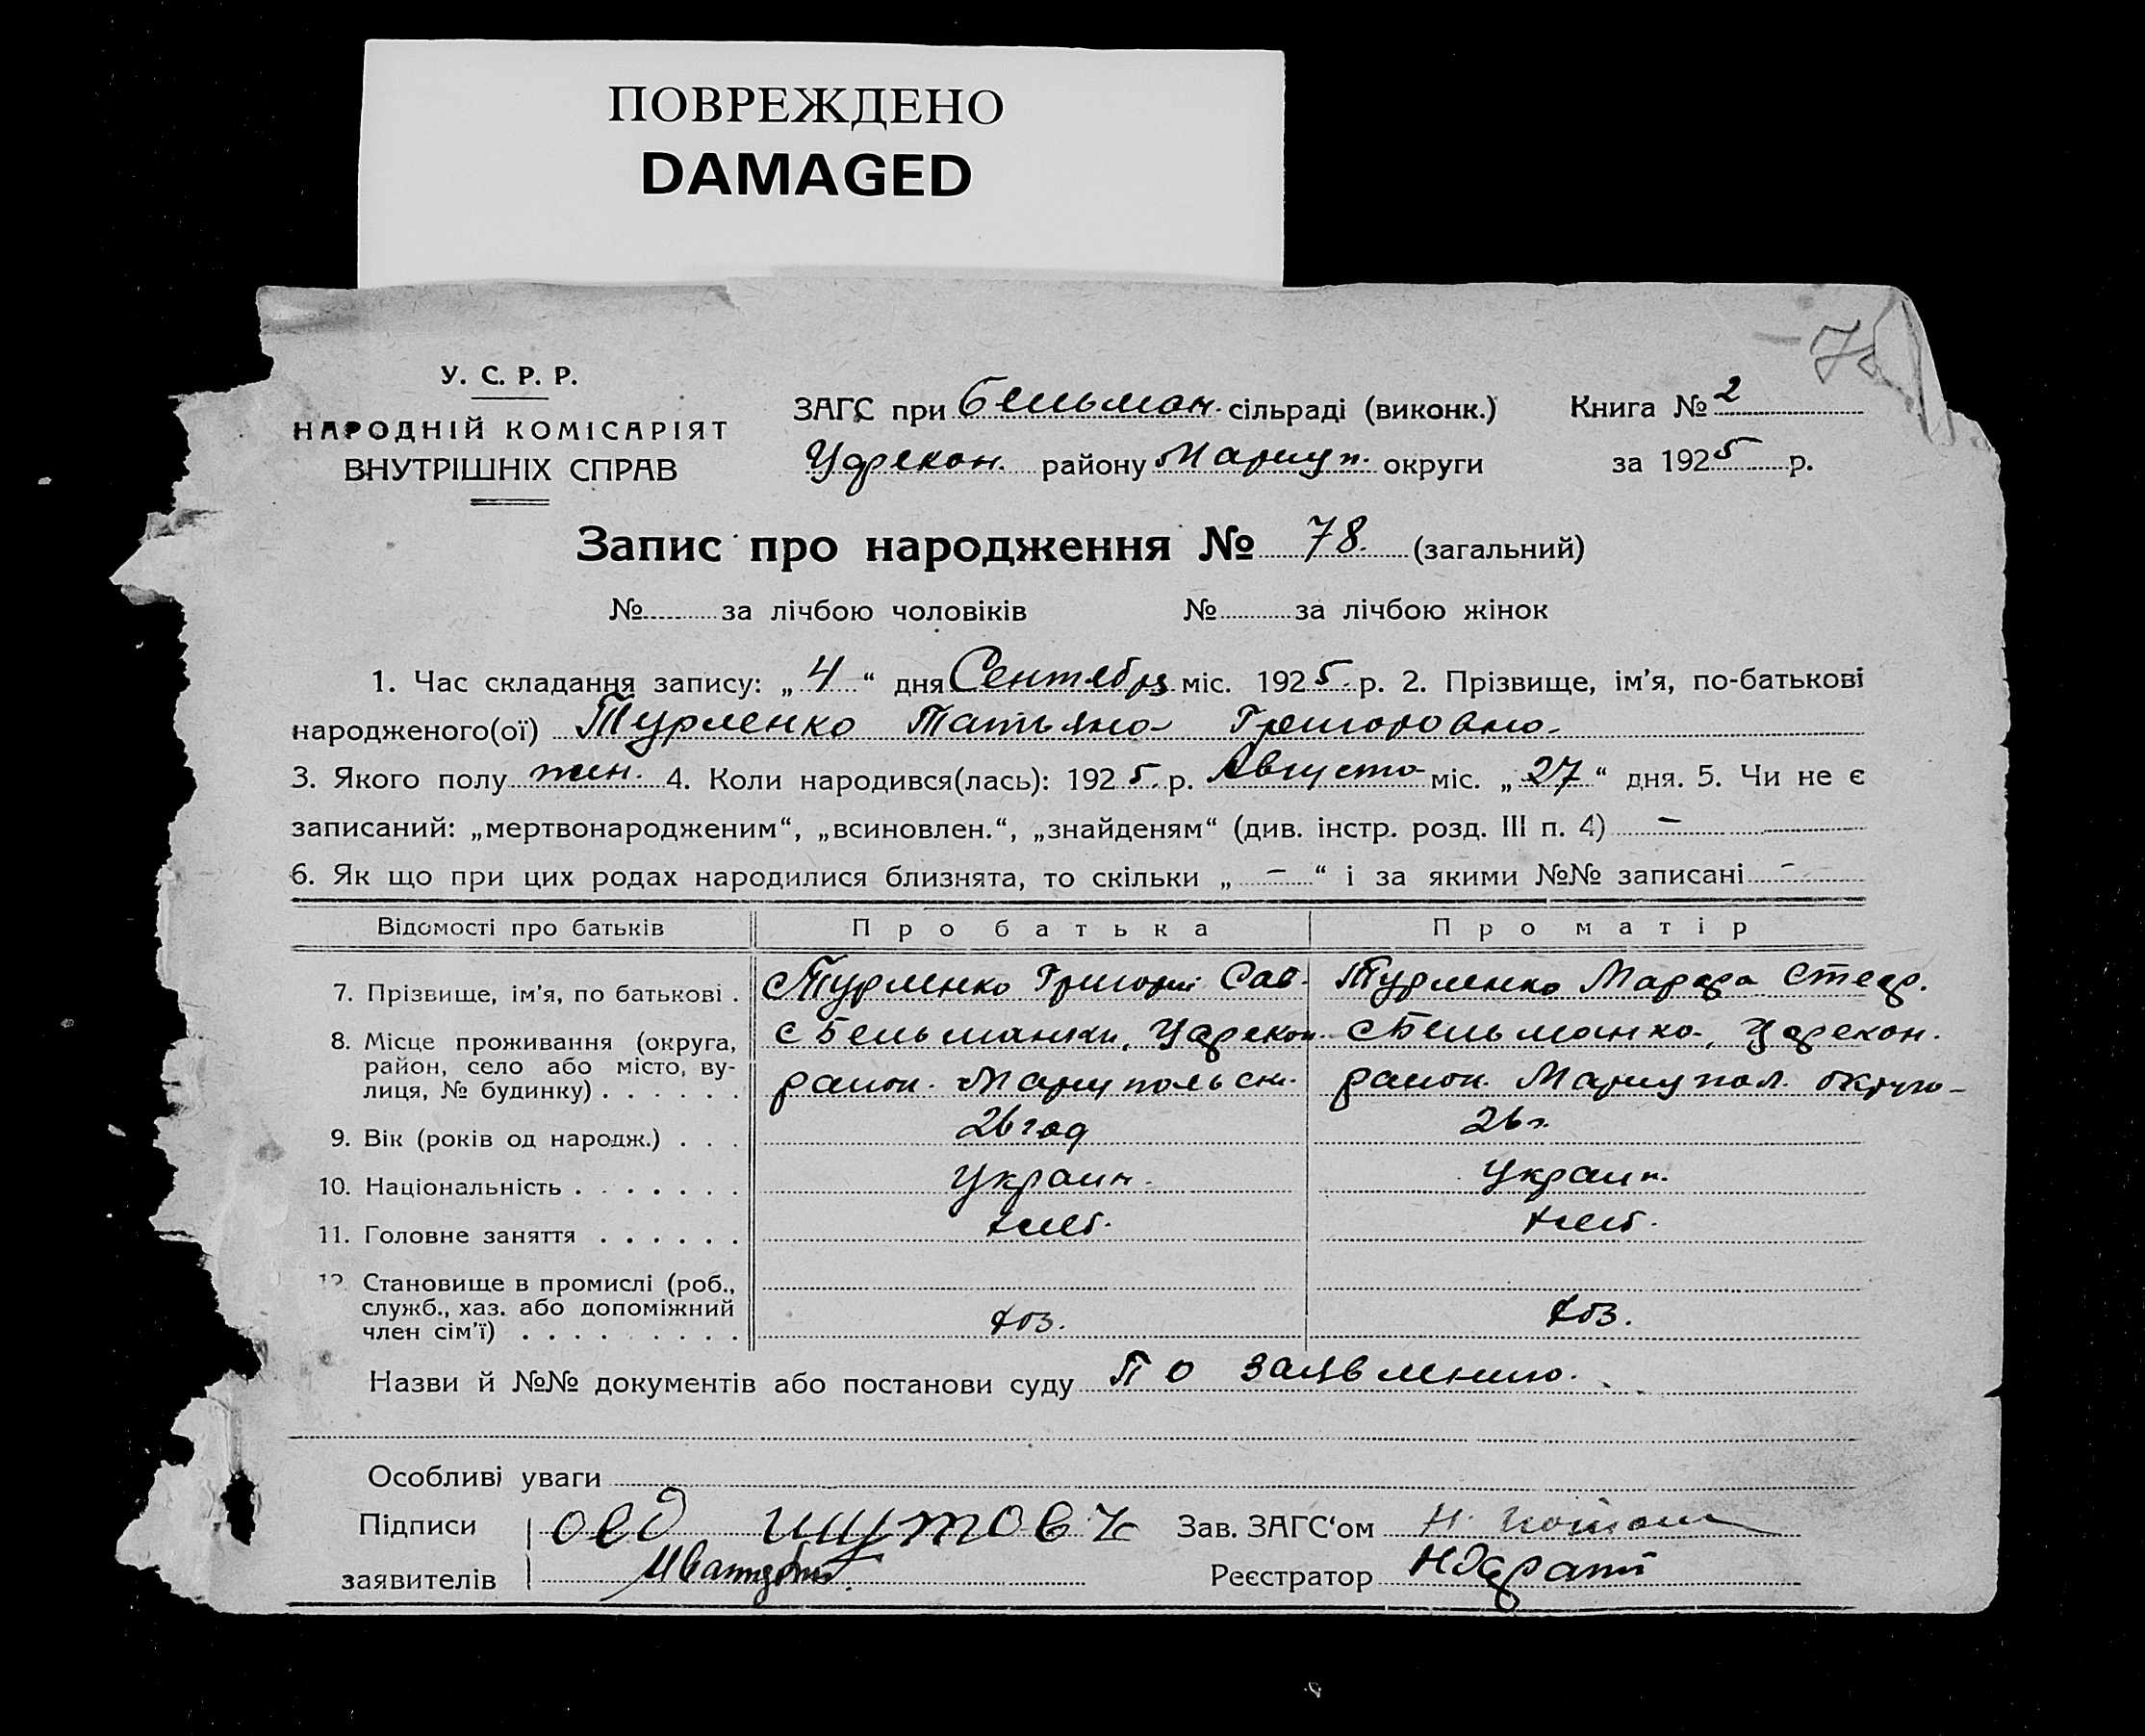 ПОВРЕЖДЕНО
DAMAGED
78
У. С. Р. Р.
НАРОДНІЙ КОМІСАРІЯТ
ВНУТРІШНІХ СПРАВ
ЗАГС при Бельман. сільраді (виконк.) Книга № 2
Царекон. району Мариуп. округи за 1925 р.
Запис про народження № 78. (загальний)
№ за лічбою чоловіків № за лічбою жінок
1. Час складання запису: „4“ дня Сентября міс. 1925 р. 2. Прізвище, ім’я, по-батькові
народженого(ої) Турленко Татьяна Григоровна.
3. Якого полу жен. 4. Коли народився(лась): 1925 р. Августа міс. „27“ дня. 5. Чи не є
записаний: „мертвонародженим“, „всиновлен.“, „знайденям“ (див. інстр. розд. III п. 4) —
6. Як що при цих родах народилися близнята, то скільки „—“ і за якими №№ записані -
Відомості про батьків Про батька Про матір
7. Прізвище, ім’я, по батькові . Турленко Григорий Сав. Турленко
8. Місце проживання (округа, район, село або місто, вулиця, № будинку) . . . . . . с Бельманки, Царекон. с Бельманка, Царекон.
район. Мариупольск. район. Мариупол. округа
9. Вік (років од народж.) . . . 26 год 26 г.
10. Національність . . . . . . . Украин. Украин.
11. Головне заняття . . . . . . хлеб. хлеб.
12 Становище в промислі (роб.,
служб., хаз. або допоміжний
член сім’ї) . . . . . . . . . хоз. хоз.
Назви й №№ документів або постанови суду По заявлению.
Особливі уваги
Підписи Зав. ЗАГС‘ом Н.
заявителів Реєстратор